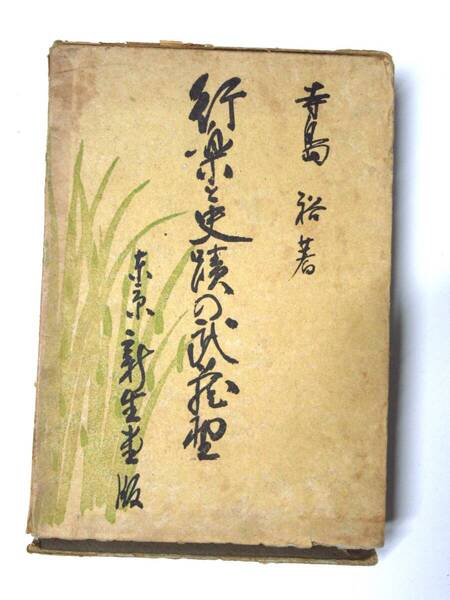 寺島裕著
行楽と史蹟の武蔵野
東京新生堂版